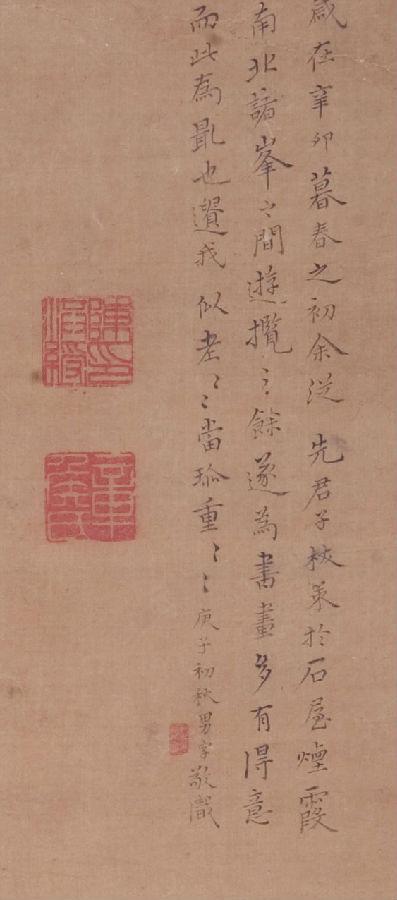 歲在辛卯暮春之初余從 先君子杖策於石屋煙霞
南北諸峯之間遊攬之餘遂為書畫多有得意
而此為最也遺我 似老〻〻當珎重〻〻庚子初秋男字敬識
陳印洪綬